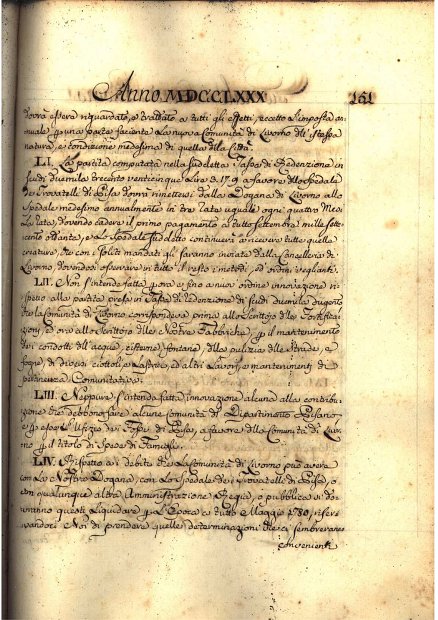 Anno MDCCLXXX 161
dovrà essere riguardato, e trattato a tutti gli effetti, eccetto l'imposta an-
nuale per una parte faciente la nuova Comunità di Livorno dell'istessa
natura, e condizione medesima di quella della Città.
LI. La partita computata nella suddetta Tassa di Redenzione in
scudi duemila trecento venticinque Lire 2. 17. 9 a favore dello Spedale
dei Trovatelli di Pisa dovrà rimettersi dalla Dogana di Livorno allo
Spedale medesimo annualmente in tre rate uguale ogni quattro Mesi
la rata, dovendo cadere il primo pagamento a tutto Settembre mille sette-
cento ottanta, e lo Spedale suddetto continuerà a ricevere tutte quelle
creature, che con i soliti mandati gli saranno inviate dalla Cancelleria di
Livorno, dovendosi osservare in tutto il resto i metodi, ed ordini veglianti.
LII. Non s'intende fatta per ora e fino a nuovo ordine innovazione ri-
spetto alla partita presa in Tassa di redenzione di scudi duemila dugento
che la Comunità di Livorno corrispondeva prima allo Scrittojo delle Fortificaz-
zioni ed ora allo Scrittoio delle Nostre Fabbriche, per il mantenimento
dei condotti dell'acque, cisterne, fontane, della pulizia delle Strade, e
fogne, di diversi ciottoli e lastrici, ed altri lavori, e mantenimenti di
pertinenza Comunitativa.
LIII. Neppure s'intende fatta innovazione alcuna alla contribu-
zione che debbono fare alcune Comunità di Dipartimento Pisano
e per esse l'Ufizio dei Fossi di Pisa, a favore della Comunità di Livor-
no per il titolo di Spese di Famigli.
LIV. Rispetto ai debiti che la Comunità di Livorno può avere
con la Nostra Dogana, con lo Spedale dei Trovatelli di Pisa, o
con qualunque altra Amministrazione Regia, o pubblica si do-
vranno questi liquidare per l'Epoca a tutto Maggio 1780, riser-
vandoci Noi di prendere quelle determinazioni che ci sembreranno
convenienti